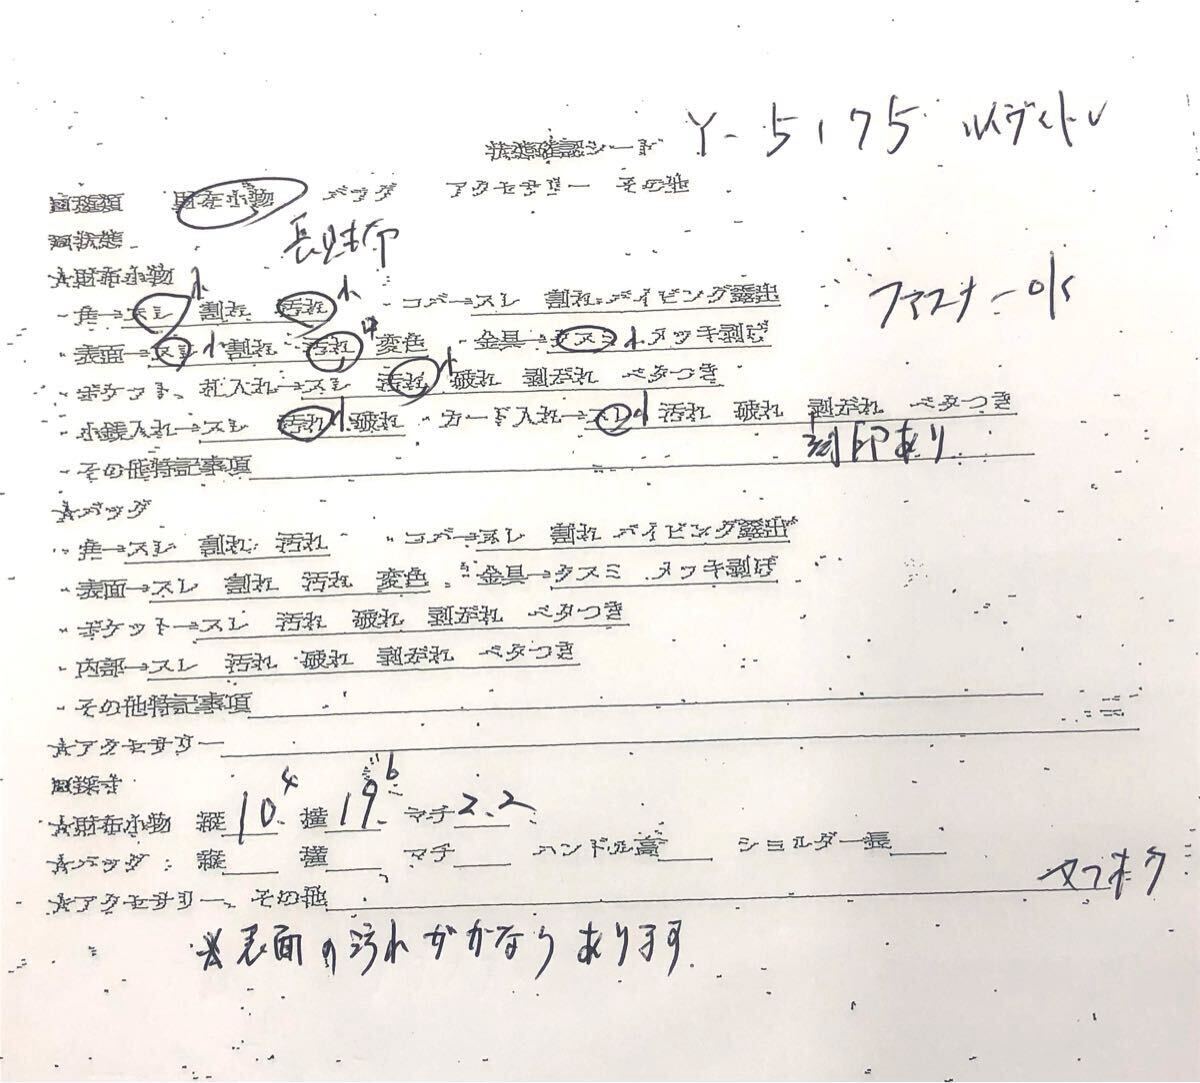 Y-5175 ルイヴィトン
状態確認シート
□種類 財布小物 バッグ アクセサリー その他
□状態 長財布
★財布小物
・角→スレ 小 割れ 汚れ 小 ・コバ→スレ 割れ パイピング露出 ファスナーOK
・表面→スレ 小 割れ 汚れ 中 変色 ・金具→クスミ 小 メッキ剥げ
・ポケット、札入れ→スレ 汚れ 小 破れ 剥がれ ベタつき
・小銭入れ→スレ 汚れ 小 破れ ・カード入れ→スレ 小 汚れ 破れ 剥がれ ベタつき
・その他特記事項 刻印あり
★バッグ
・角→スレ 割れ 汚れ ・コバ→スレ 割れ パイピング露出
・表面→スレ 割れ 汚れ 変色 ・金具→クスミ メッキ剥げ
・ポケット→スレ 汚れ 破れ 剥がれ ベタつき
・内部→スレ 汚れ 破れ 剥がれ ベタつき
・その他特記事項
★アクセサリー
□採寸
★財布小物 縦 10.4 横 19.6 マチ 2.2
★バッグ: 縦 横 マチ ハンドル高 ショルダー長
★アクセサリー、その他 ヤフオク
★表面の汚れがかなりあります